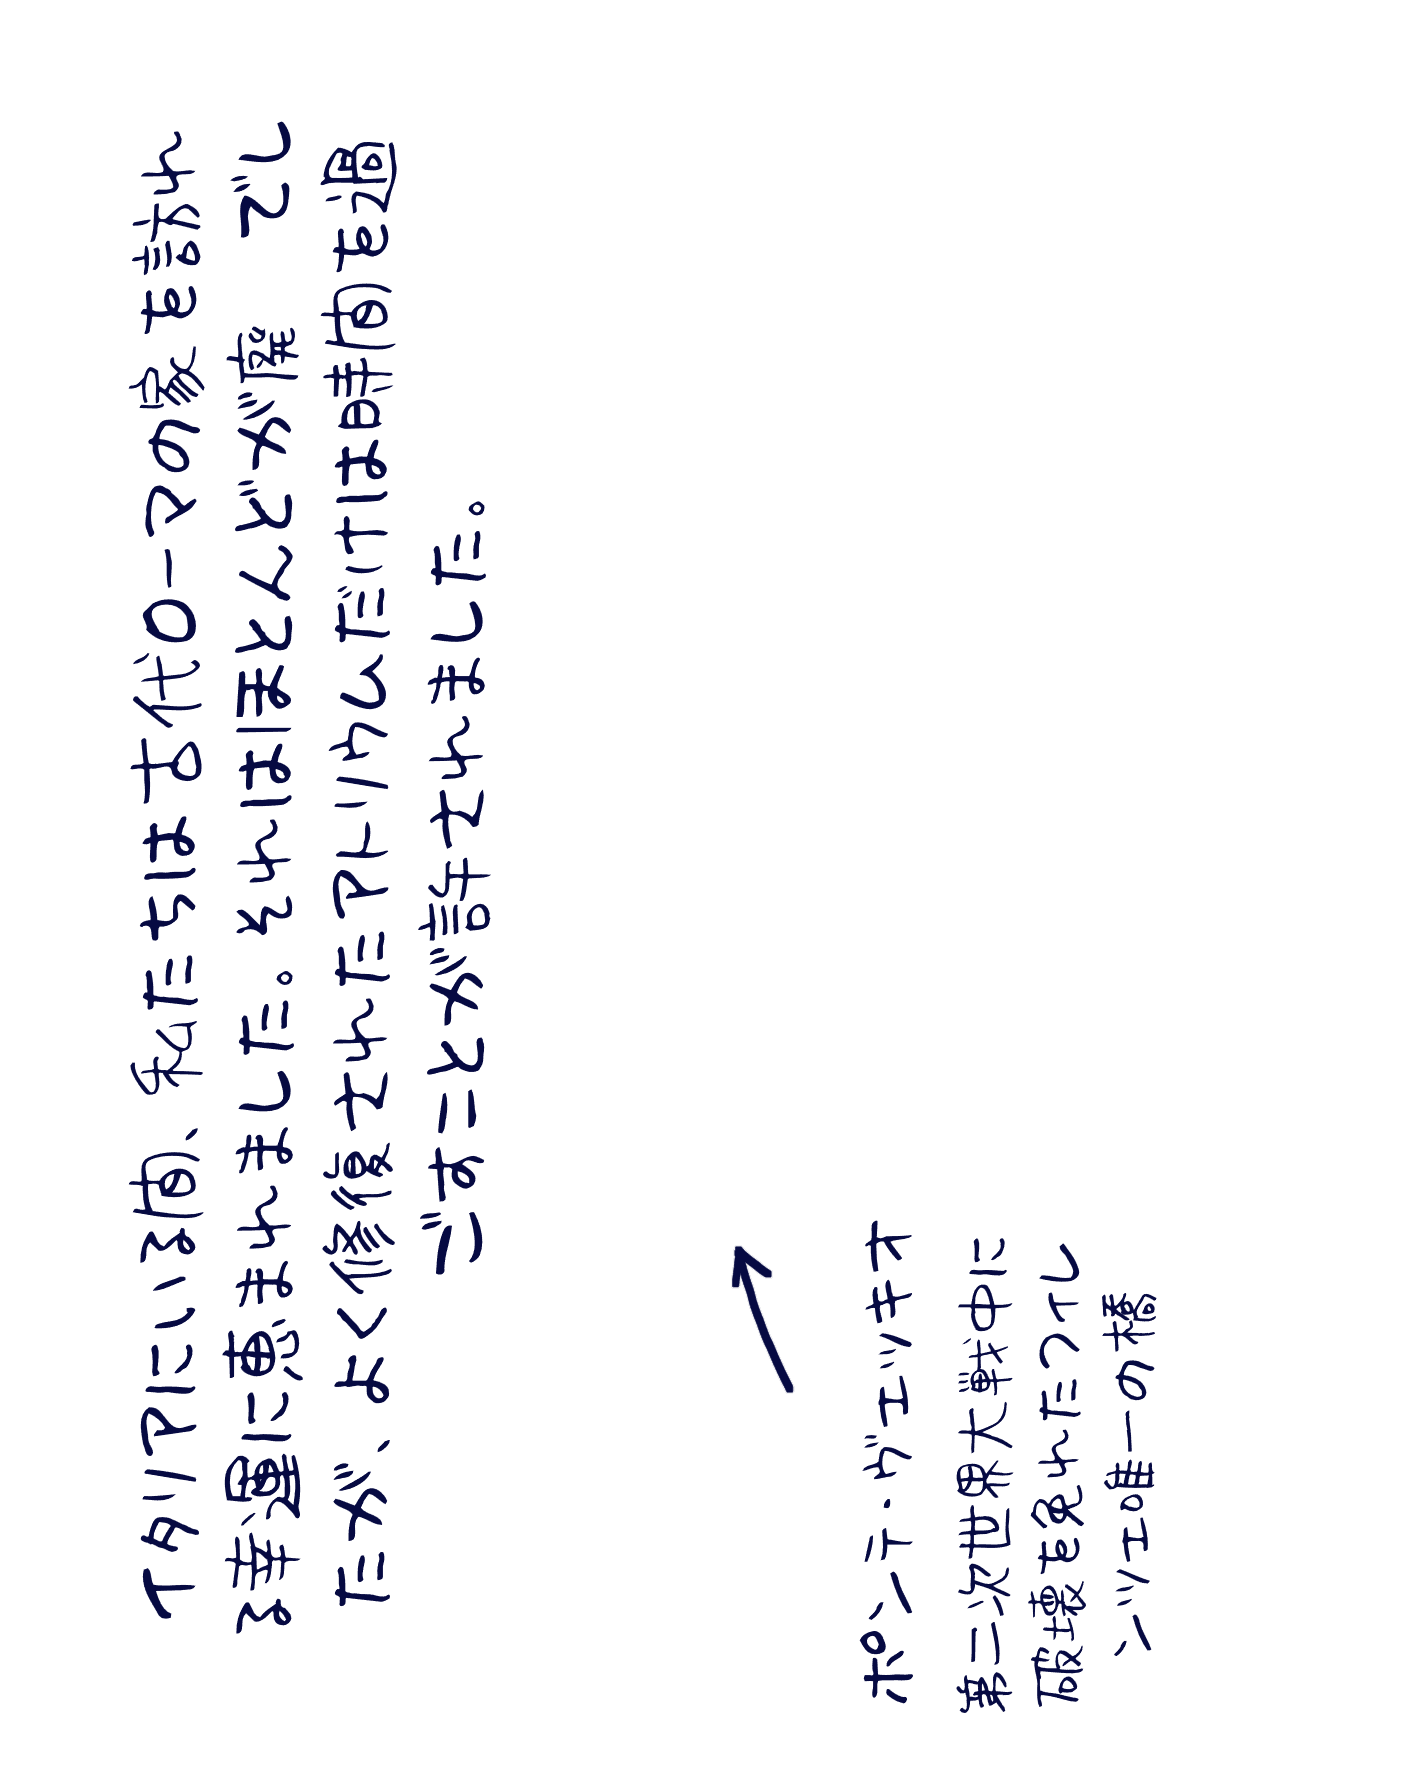 イタリアにいる間、私たちは古代ローマの家を訪れ
る幸運に恵まれました。それはほとんどが廃 でし
たが、よく修復されたアトリウムだけは時間を過
ごすことが許されました。
ポンテ・ヴェッキオ
第二次世界大戦中に
破壊を免れたフィレ
ンツェ唯一の橋